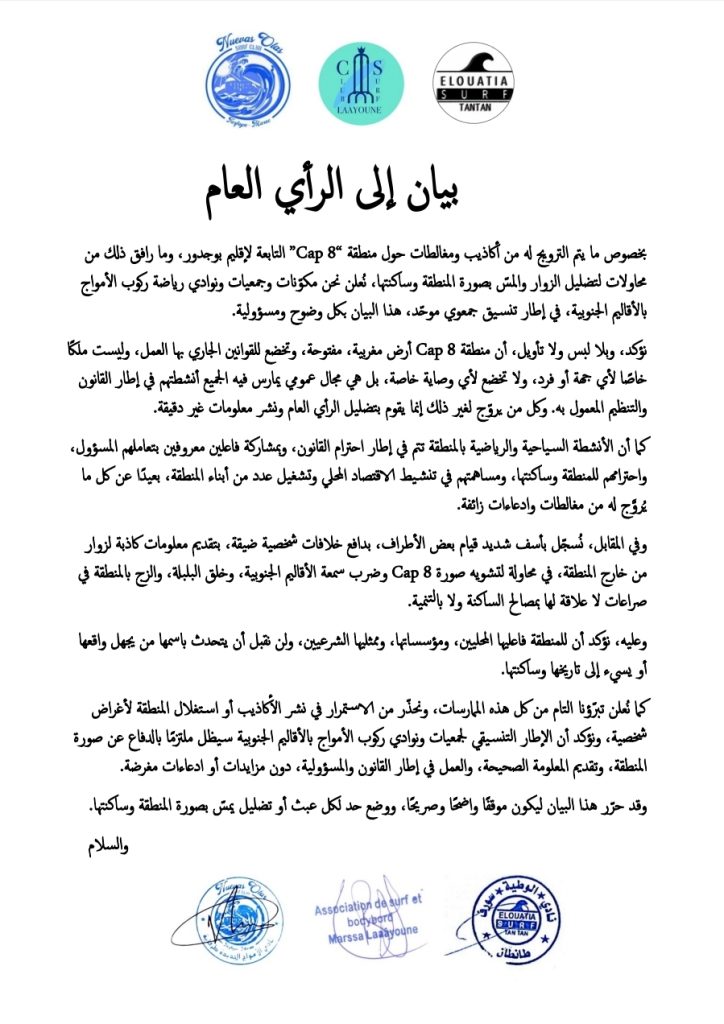 Nuevas Olas
SURF CLUB
Tarfaya - Maroc
C S
CLUB SURF
LAAYOUNE
ELOUATIA
SURF
TANTAN
بيان إلى الرأي العام
بخصوص ما يتم الترويج له من أكاذيب ومغالطات حول منطقة “Cap 8” التابعة لإقليم بوجدور، وما رافق ذلك من
محاولات لتضليل الزوار والمسّ بصورة المنطقة وساكنتها، نُعلن نحن مكوّنات وجمعيات ونوادي رياضة ركوب الأمواج
بالأقاليم الجنوبية، في إطار تنسيق جمعوي موحّد، هذا البيان بكل وضوح ومسؤولية.
نؤكد، وبلا لبس ولا تأويل، أن منطقة Cap 8 أرض مغربية، مفتوحة، وتخضع للقوانين الجاري بها العمل، وليست ملكًا
خاصًا لأي جهة أو فرد، ولا تخضع لأي وصاية خاصة، بل هي مجال عمومي يمارس فيه الجميع أنشطتهم في إطار القانون
والتنظيم المعمول به. وكل من يروّج لغير ذلك إنما يقوم بتضليل الرأي العام ونشر معلومات غير دقيقة.
كما أن الأنشطة السياحية والرياضية بالمنطقة تتم في إطار احترام القانون، وبمشاركة فاعلين معروفين بتعاملهم المسؤول،
واحترامهم للمنطقة وساكنتها، ومساهمتهم في تنشيط الاقتصاد المحلي وتشغيل عدد من أبناء المنطقة، بعيدًا عن كل ما
يُروَّج له من مغالطات وادعاءات زائفة.
وفي المقابل، نُسجّل بأسف شديد قيام بعض الأطراف، بدافع خلافات شخصية ضيقة، بتقديم معلومات كاذبة لزوار
من خارج المنطقة، في محاولة لتشويه صورة Cap 8 وضرب سمعة الأقاليم الجنوبية، وخلق البلبلة، والزج بالمنطقة في
صراعات لا علاقة لها بمصالح الساكنة ولا بالتنمية.
وعليه، نؤكد أن للمنطقة فاعليها المحليين، ومؤسساتها، وممثليها الشرعيين، ولن نقبل أن يتحدث باسمها من يجهل واقعها
أو يسيء إلى تاريخها وساكنتها.
كما نُعلن تبرّؤنا التام من كل هذه الممارسات، ونحذّر من الاستمرار في نشر الأكاذيب أو استغلال المنطقة لأغراض
شخصية، ونؤكد أن الإطار التنسيقي لجمعيات ونوادي ركوب الأمواج بالأقاليم الجنوبية سيظل ملتزمًا بالدفاع عن صورة
المنطقة، وتقديم المعلومة الصحيحة، والعمل في إطار القانون والمسؤولية، دون مزايدات أو ادعاءات مغرضة.
وقد حرّر هذا البيان ليكون موقفًا واضحًا وصريحًا، ووضع حد لكل عبث أو تضليل يمسّ بصورة المنطقة وساكنتها.
والسلام
نادي الوطية سورف
ELOUATIA
SURF
TAN TAN
طانطان
Association de surf et
bodybord
Marssa Laaâyoune
Nuevas Olas
SURF CLUB